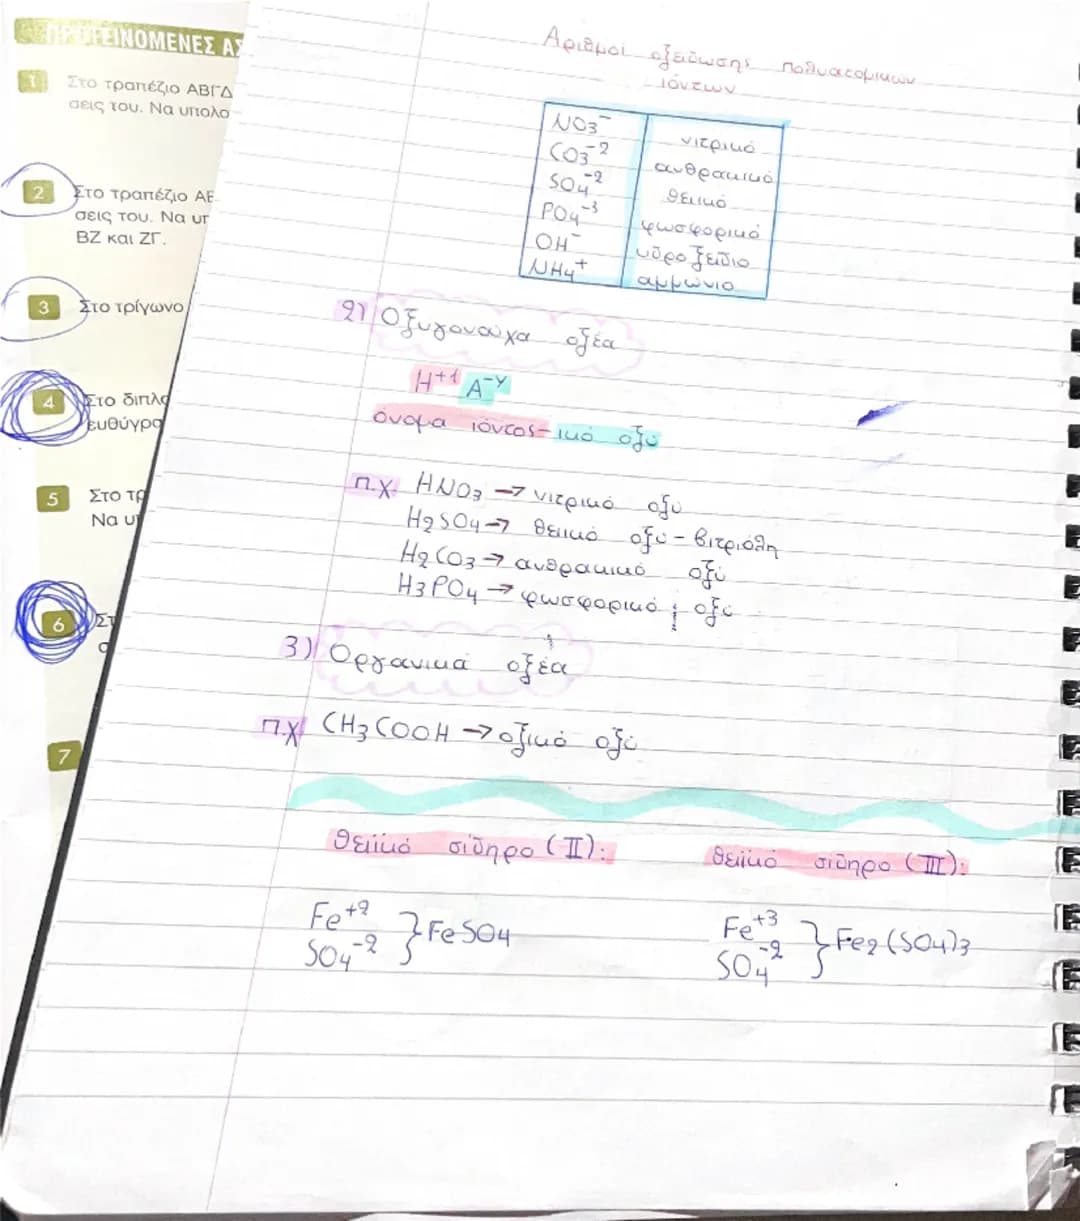 ΠΡΟΤΕΙΝΟΜΕΝΕΣ ΑΣ
1 Στο τραπέζιο ΑΒΓΔ
σεις του. Να υπολο
2 Στο τραπέζιο ΑΒ
σεις του. Να υπ
ΒΖ και ΖΓ.
3 Στο τρίγωνο
4 Στο διπλα
ευθύγρα
5 Στο τρ
Να υ
6 Στ
σ
7
Αριθμοί οξείδωσης πολυατομικων
ιόντων
NO3⁻ νιτρικό
CO3⁻² ανθρακικό
SO4⁻² θειικό
PO4⁻³ φωσφορικό
OH⁻ υδροξείδιο
NH4⁺ αμμώνιο
2) Οξυγονούχα οξέα
H⁺¹ A⁻ʸ
όνομα ιόντος-ικό οξύ
π.χ. HNO3 → νιτρικό οξύ
H2SO4 → θειικό οξύ - βιτριόλη
H2CO3 → ανθρακικό οξύ
H3PO4 → φωσφορικό οξύ
3) Οργανικά οξέα
π.χ CH3COOH → οξικό οξύ
θειϊκό σίδηρο (II): θειϊκό σίδηρο (III):
Fe⁺² } FeSO4 Fe⁺³ } Fe2(SO4)3
SO4⁻² SO4⁻²